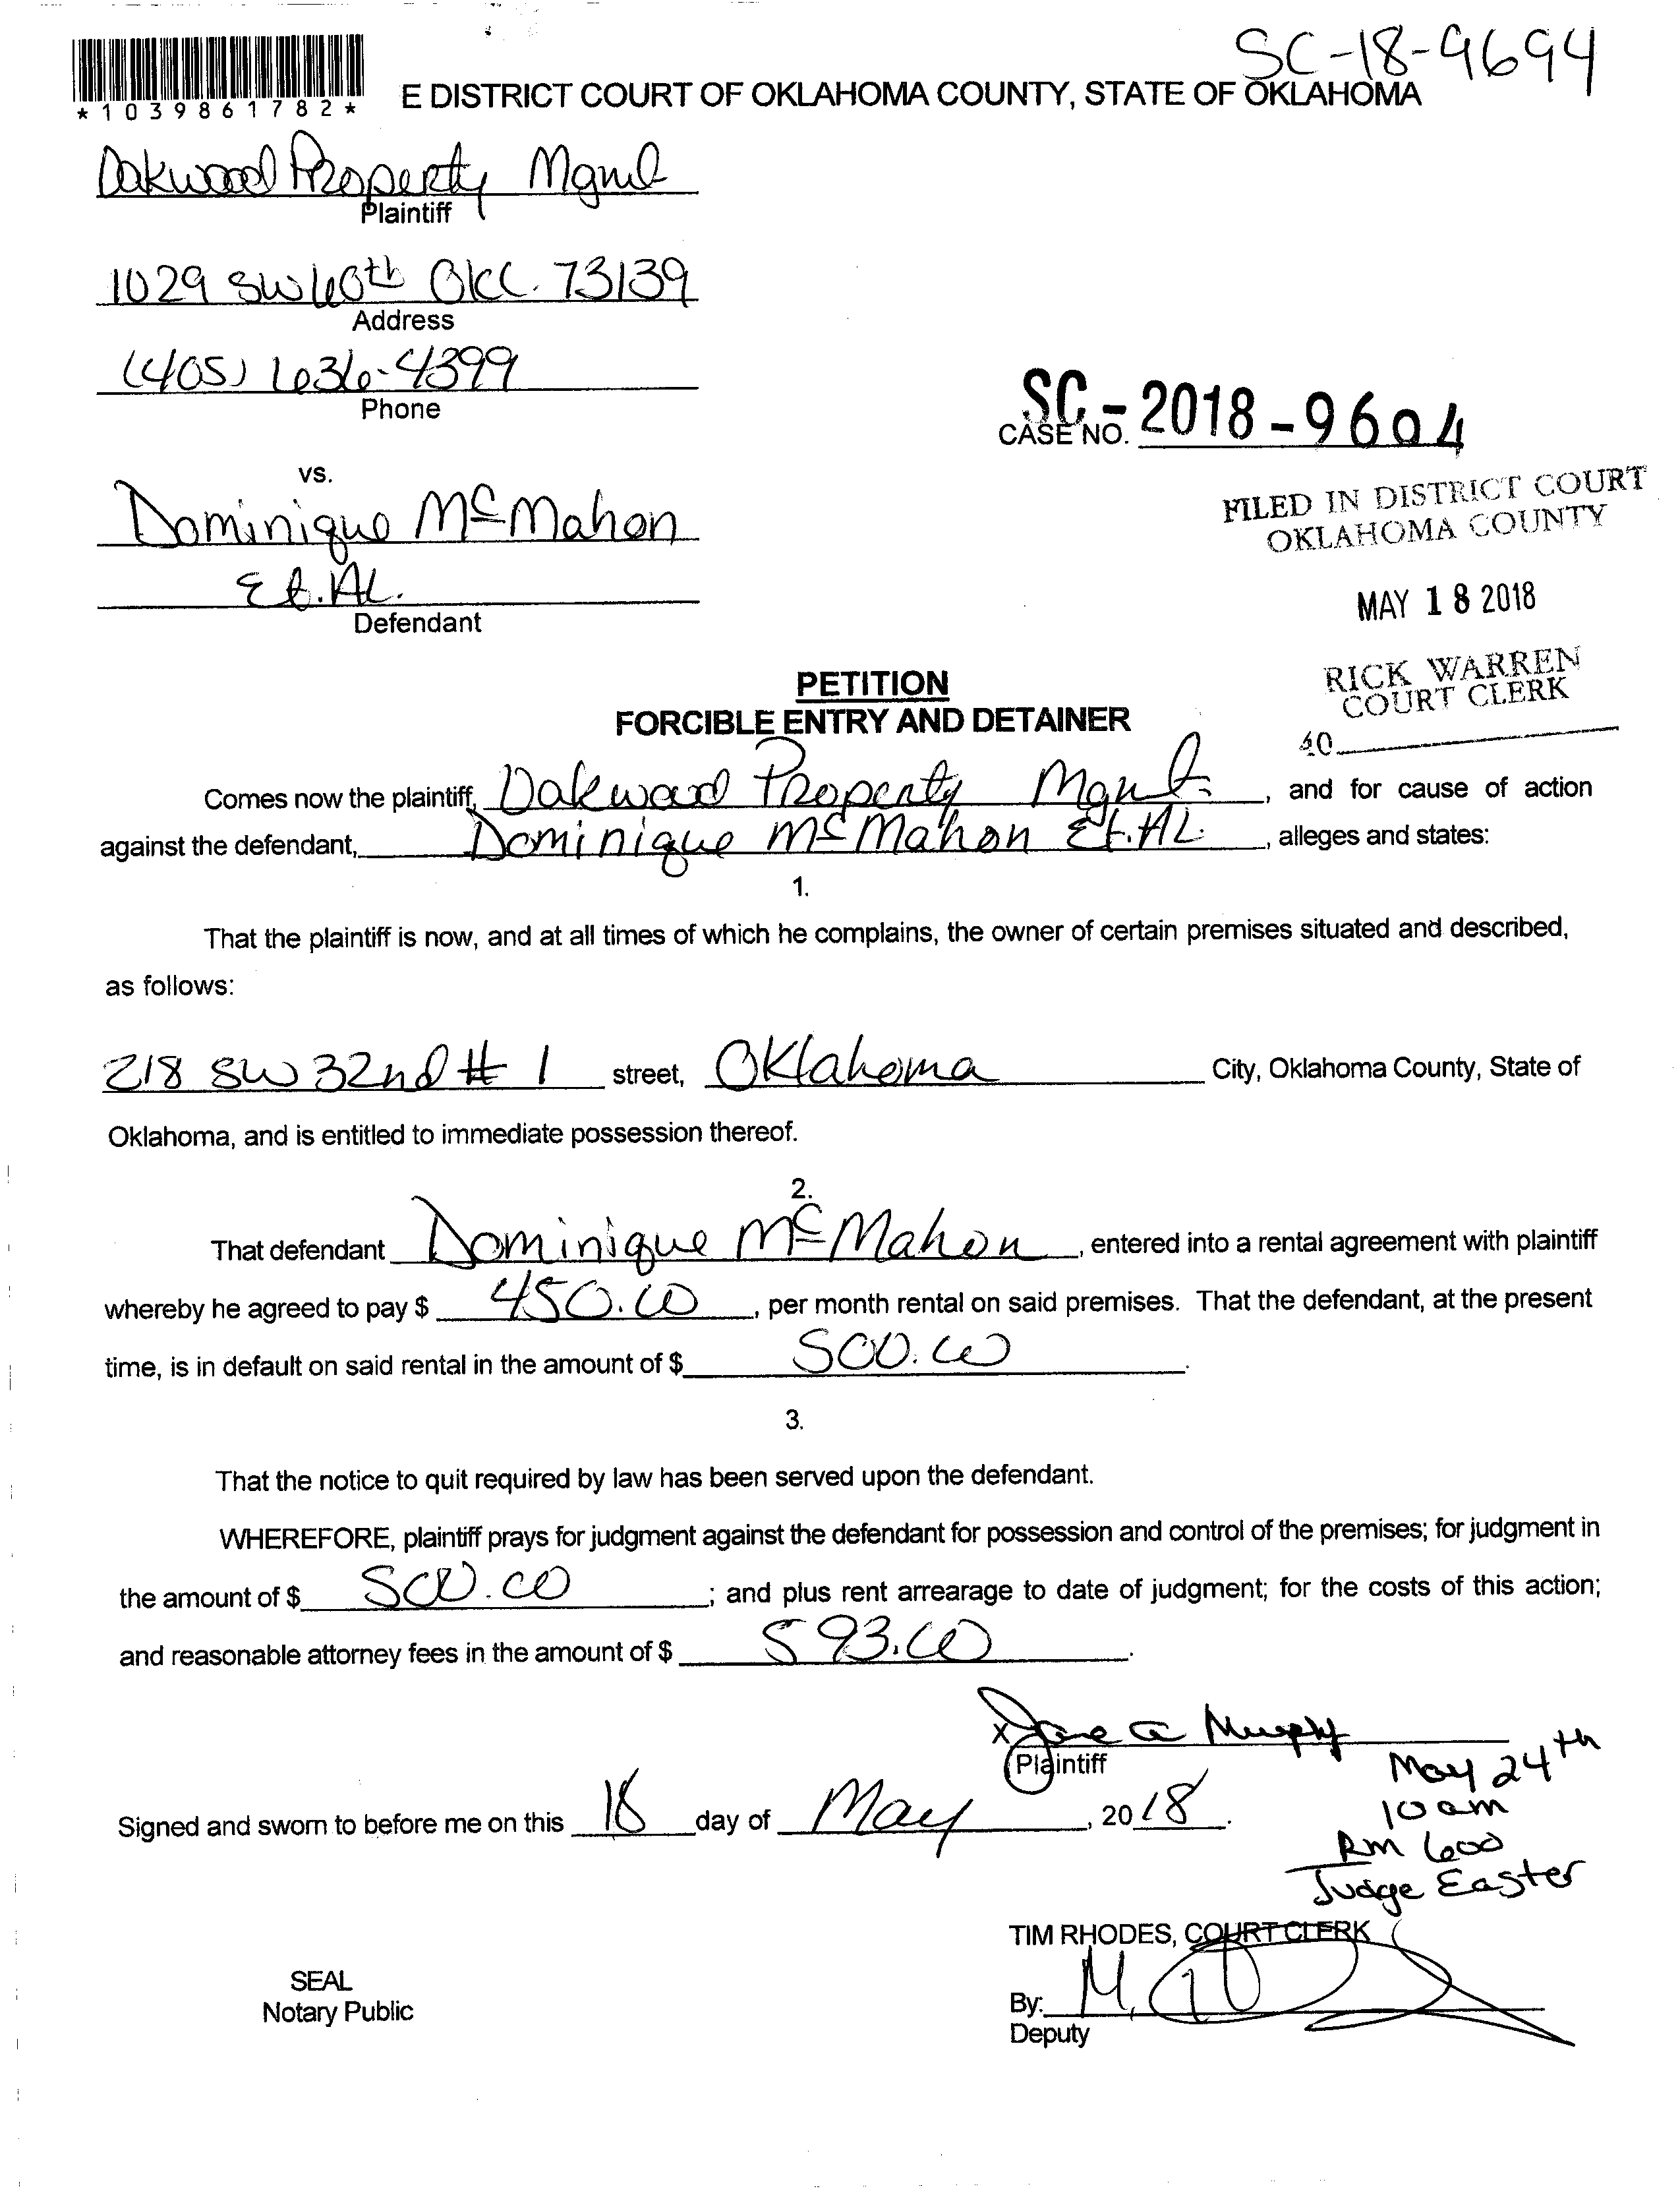 SC-18-9694
*1039861782*
E DISTRICT COURT OF OKLAHOMA COUNTY, STATE OF OKLAHOMA
Oakwood Property Mgmt
Plaintiff
1029 SW 60th OKC. 73139
Address
(405) 636-4399
Phone
SC-2018-9604
CASE NO.
vs.
FILED IN DISTRICT COURT
OKLAHOMA COUNTY
Dominique McMahon
Et. AL.
Defendant
MAY 18 2018
RICK WARREN
COURT CLERK
40
PETITION
FORCIBLE ENTRY AND DETAINER
Comes now the plaintiff, Oakwood Property Mgmt. , and for cause of action
against the defendant, Dominique McMahon Et. AL. , alleges and states:
1.
That the plaintiff is now, and at all times of which he complains, the owner of certain premises situated and described,
as follows:
218 SW 32nd # 1 street, Oklahoma City, Oklahoma County, State of
Oklahoma, and is entitled to immediate possession thereof.
2.
That defendant Dominique McMahon , entered into a rental agreement with plaintiff
whereby he agreed to pay $ 450.00 , per month rental on said premises. That the defendant, at the present
time, is in default on said rental in the amount of $ 500.00 .
3.
That the notice to quit required by law has been served upon the defendant.
WHEREFORE, plaintiff prays for judgment against the defendant for possession and control of the premises; for judgment in
the amount of $ 500.00 ; and plus rent arrearage to date of judgment; for the costs of this action;
and reasonable attorney fees in the amount of $ 593.00 .
x Jane a Murphy
Plaintiff
May 24th
10 am
Rm 600
Judge Easter
Signed and sworn to before me on this 18 day of May , 2018 .
TIM RHODES, COURT CLERK
SEAL
Notary Public
By: M.
Deputy